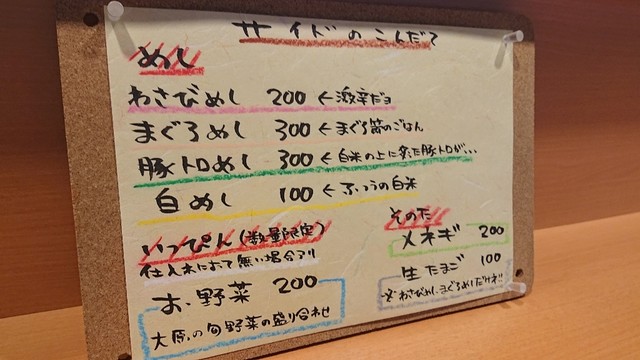 サイドのこんだて
めし
わさびめし 200 ←激辛だョ
まぐろめし 300 ←まぐろ節のごはん
豚トロめし 300 ←白米の上に炙った豚トロが…
白めし 100 ←ふつうの白米
いっぴん(数量限定)
仕入れによって無い場合アリ
お、野菜 200
大原の旬野菜の盛り合わせ
そのた
メネギ 200
生たまご 100
※わさびめし、まぐろめしだけネ!!